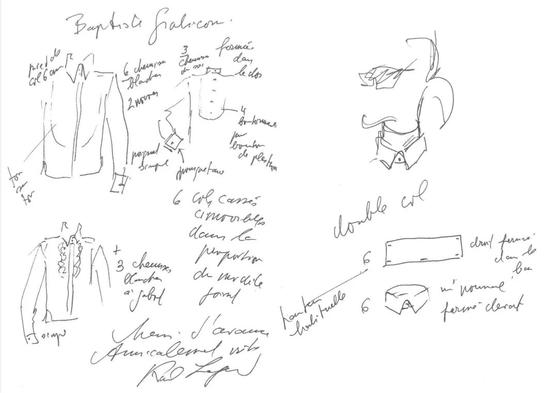 Baptiste Giabiconi
pied de
col 6 cm
6 chemises
blanches
2 noires
3
chemises
fermées
dans
le dos
4
boutonnières
par
bouton
de plastron
poignet
simple
ton
sur
ton
6 cols cassés
amovibles
dans la
proportion
du modèle
+
3 chemises
blanches
à jabot
simple
Merci d'avance
Amicalement
double col
6
droit fermé
dans le
hauteur
habituelle
6
mi normal
fermé devant